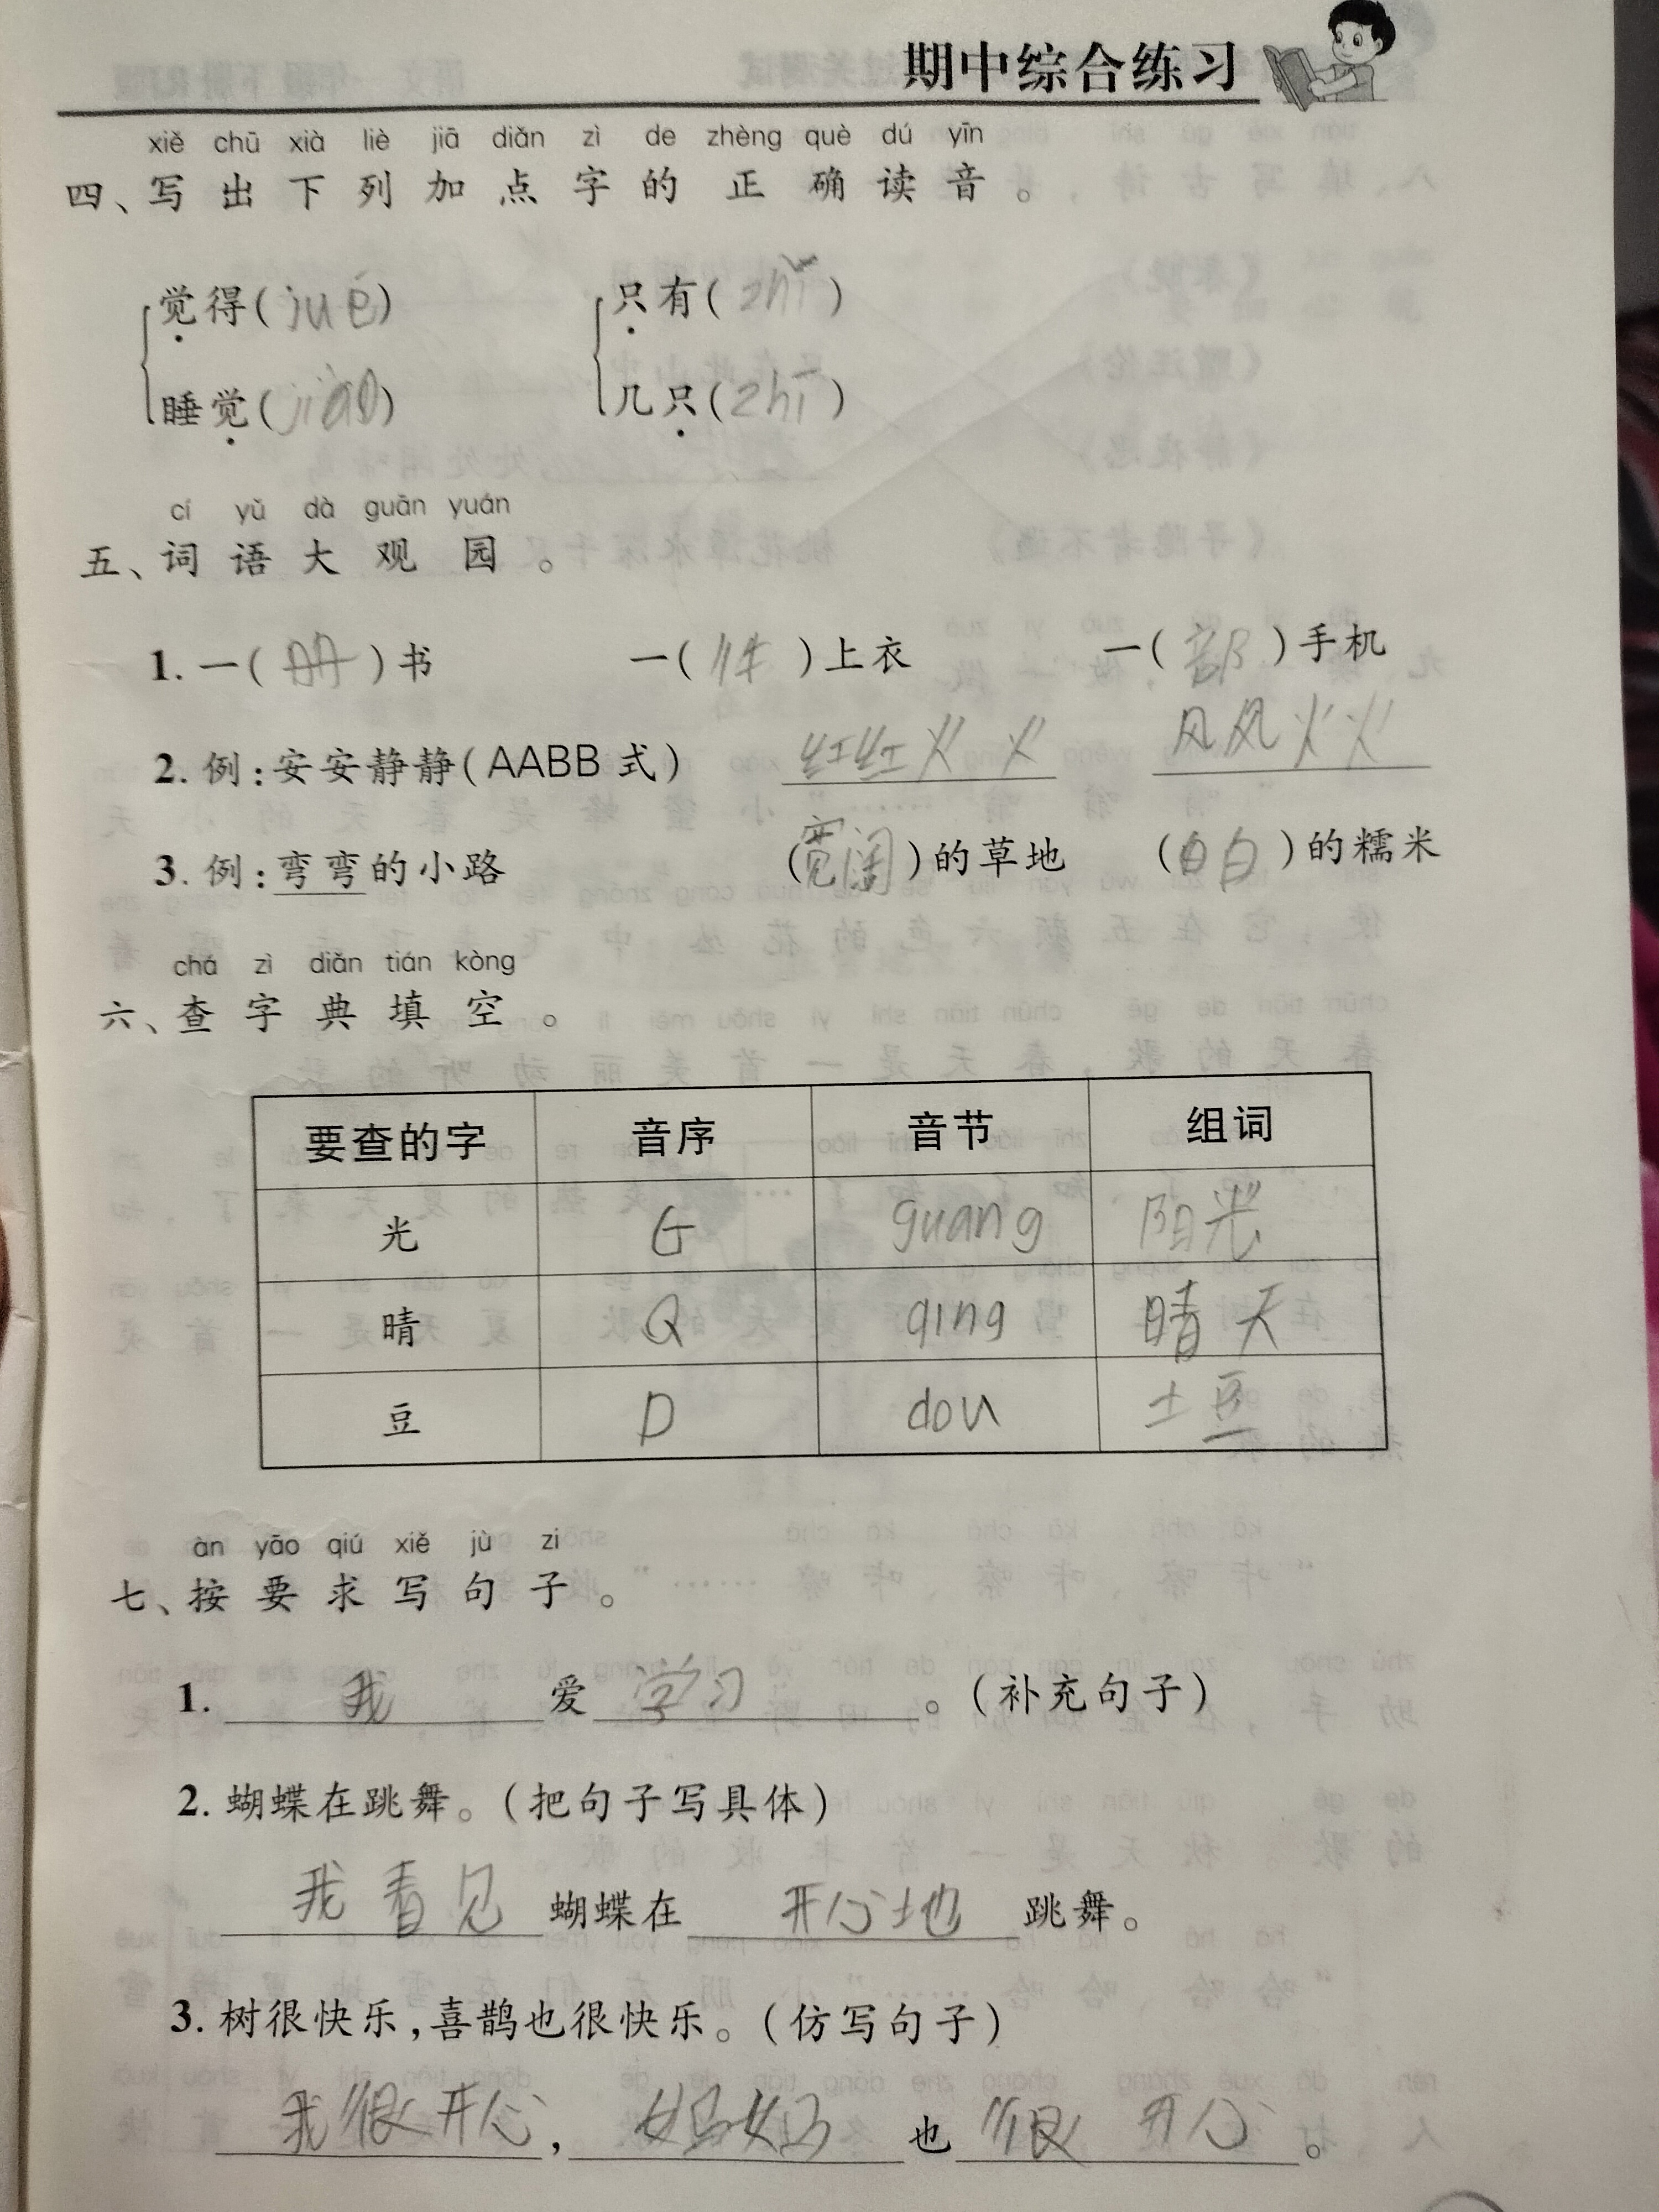 期中综合练习
xiě chū xià liè jiā diǎn zì de zhèng què dú yīn
四、写出下列加点字的正确读音。
觉得(jué) 只有(zhǐ)
睡觉(jiào) 几只(zhī)
cí yǔ dà guān yuán
五、词语大观园。
1. 一(册)书 一(件)上衣 一(部)手机
2. 例:安安静静(AABB 式) 红红火火 风风火火
3. 例:弯弯的小路 (宽阔)的草地 (白白)的糯米
chá zì diǎn tián kòng
六、查字典填空。
要查的字 音序 音节 组词
光 G guang 阳光
晴 Q qing 晴天
豆 D dou 土豆
àn yāo qiú xiě jù zi
七、按要求写句子。
1. 我 爱 学习 。(补充句子)
2. 蝴蝶在跳舞。(把句子写具体)
我看见 蝴蝶在 开心地 跳舞。
3. 树很快乐,喜鹊也很快乐。(仿写句子)
我很开心, 妈妈 也 很开心 。